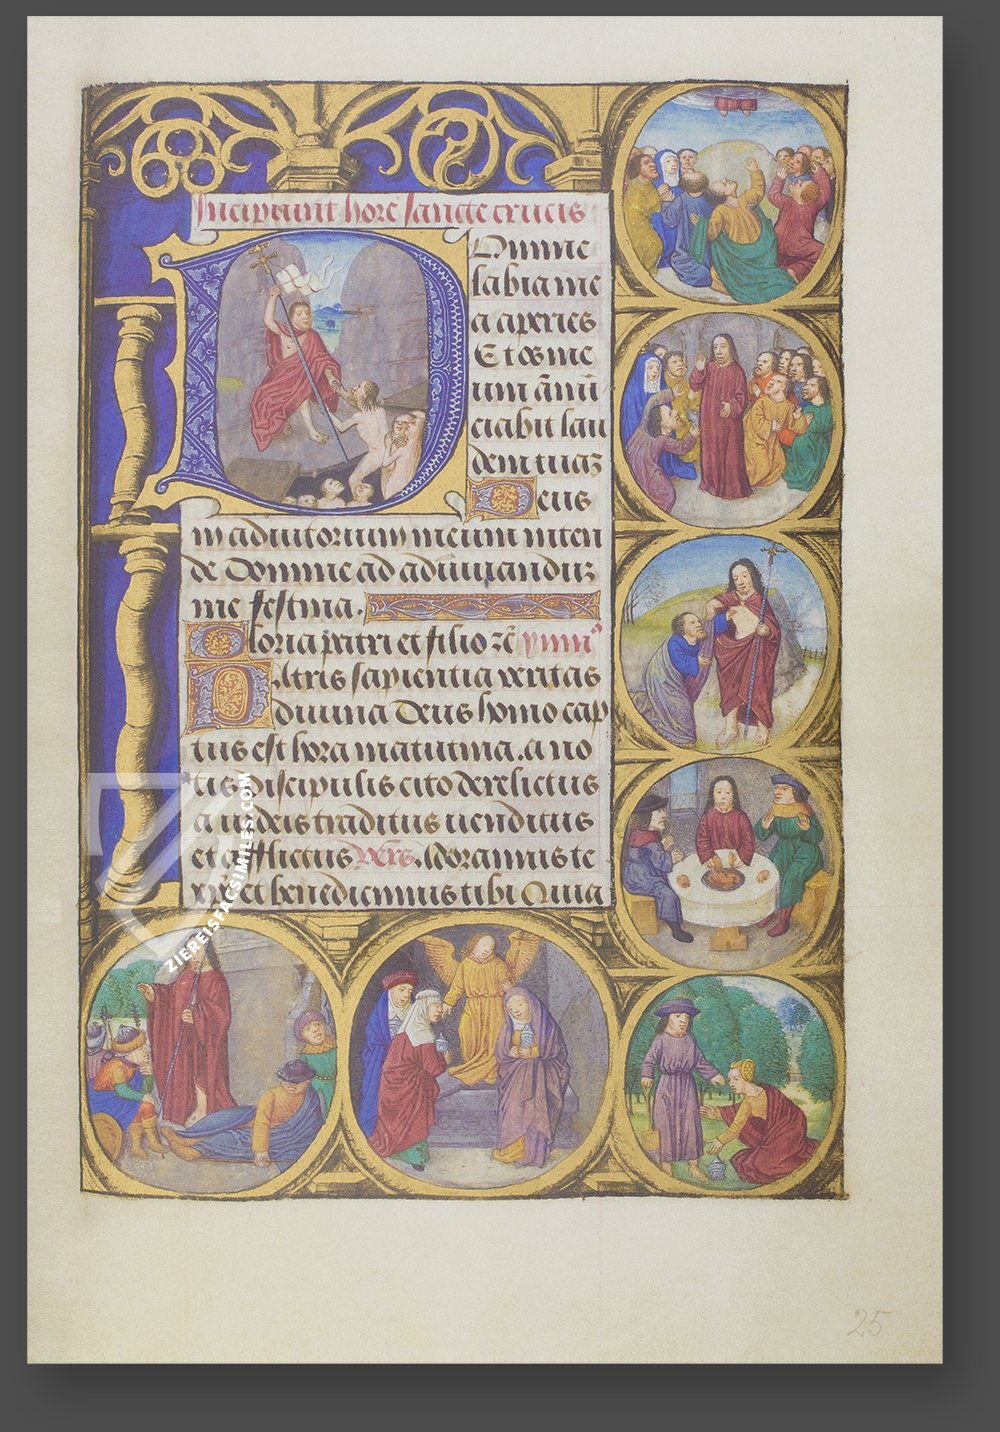 Incipiunt hore sancte crucis
Domine
labia me
a aperies
Et os me
um ānū
ciabit lau
dem tuaꝫ
Deus
in adiutorium meum inten
de Domine ad adiuuanduꝫ
me festina.
Gloria patri et filio ꝛc̄ ymnꝰ
Patris sapientia veritas
diuina Deus homo cap
tus est hora matutina. a no
tis discipulis cito derelictus
a iudeis traditus uenditus
et afflictus Vers. Adoramus te
xp̄e et benedicimus tibi Quia
ZIEREISFACSIMILES.COM
25